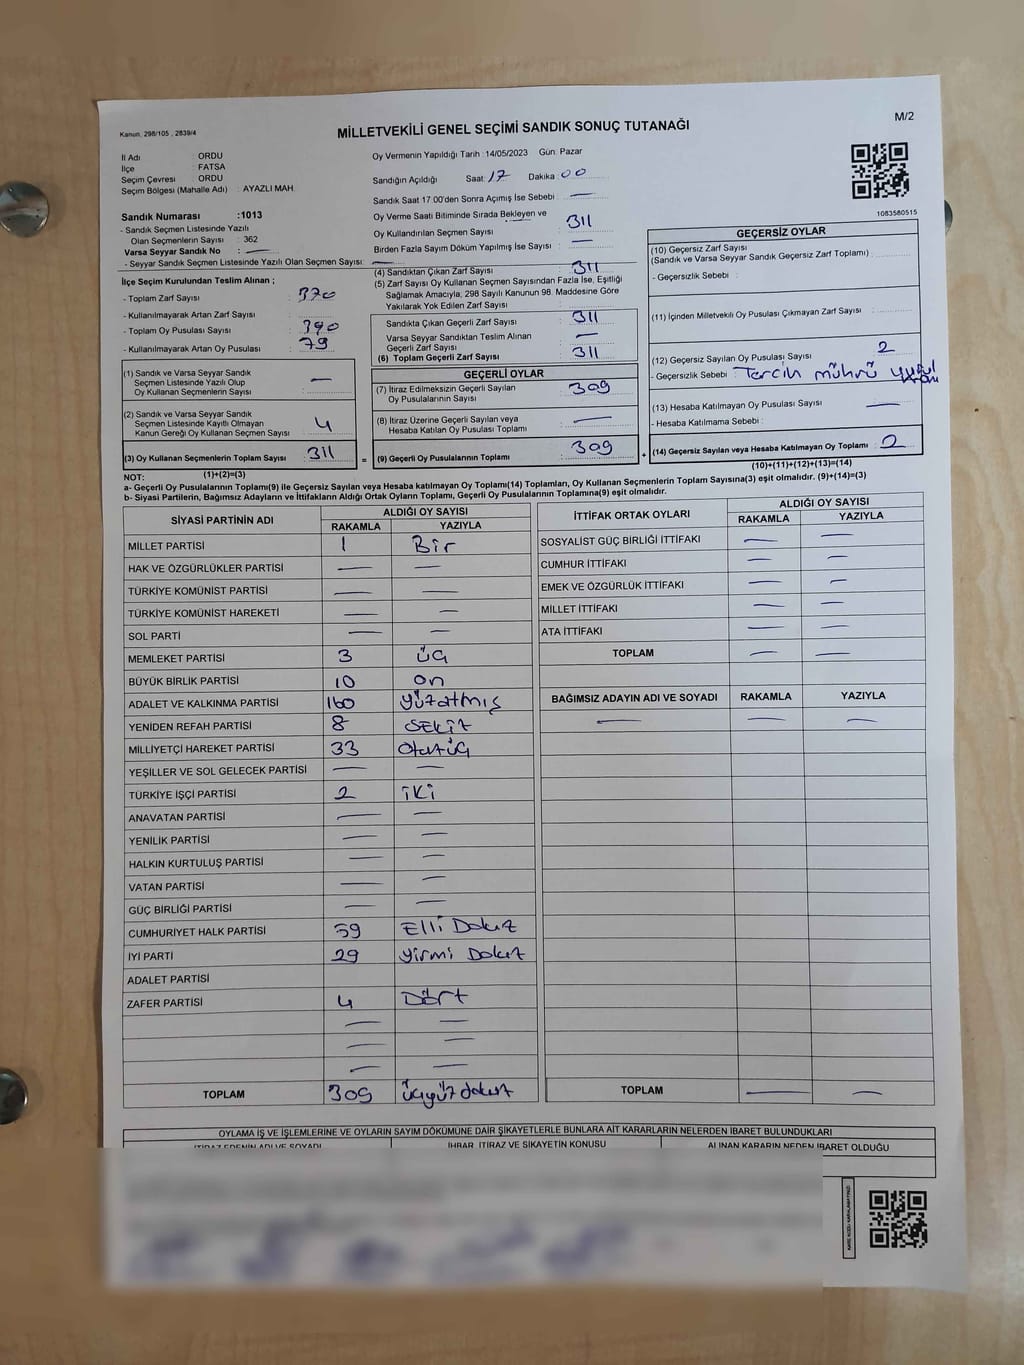 Kanun, 298/105 , 2839/4
MİLLETVEKİLİ GENEL SEÇİMİ SANDIK SONUÇ TUTANAĞI
M/2
İl Adı : ORDU
İlçe : FATSA
Seçim Çevresi : ORDU
Seçim Bölgesi (Mahalle Adı) : AYAZLI MAH.
Sandık Numarası :1013
- Sandık Seçmen Listesinde Yazılı
Olan Seçmenlerin Sayısı : 362
Varsa Seyyar Sandık No : —
- Seyyar Sandık Seçmen Listesinde Yazılı Olan Seçmen Sayısı: —
Oy Vermenin Yapıldığı Tarih : 14/05/2023 Gün: Pazar
Sandığın Açıldığı Saat: 17 Dakika: 00
Sandık Saat 17.00'den Sonra Açımış İse Sebebi : —
Oy Verme Saati Bitiminde Sırada Bekleyen ve
Oy Kullandırılan Seçmen Sayısı : 311
Birden Fazla Sayım Döküm Yapılmış İse Sayısı : —
1083580515
İlçe Seçim Kurulundan Teslim Alınan ;
- Toplam Zarf Sayısı : 370
- Kullanılmayarak Artan Zarf Sayısı :
- Toplam Oy Pusulası Sayısı : 390
- Kullanılmayarak Artan Oy Pusulası : 79
(1) Sandık ve Varsa Seyyar Sandık
Seçmen Listesinde Yazılı Olup
Oy Kullanan Seçmenlerin Sayısı : —
(2) Sandık ve Varsa Seyyar Sandık
Seçmen Listesinde Kayıtlı Olmayan
Kanun Gereği Oy Kullanan Seçmen Sayısı : 4
(3) Oy Kullanan Seçmenlerin Toplam Sayısı : 311
(1)+(2)=(3)
(4) Sandıktan Çıkan Zarf Sayısı : 311
(5) Zarf Sayısı Oy Kullanan Seçmen Sayısından Fazla İse, Eşitliği
Sağlamak Amacıyla, 298 Sayılı Kanunun 98. Maddesine Göre
Yakılarak Yok Edilen Zarf Sayısı :
Sandıkta Çıkan Geçerli Zarf Sayısı : 311
Varsa Seyyar Sandıktan Teslim Alınan
Geçerli Zarf Sayısı : —
(6) Toplam Geçerli Zarf Sayısı : 311
GEÇERLİ OYLAR
(7) İtiraz Edilmeksizin Geçerli Sayılan
Oy Pusulalarının Sayısı : 309
(8) İtiraz Üzerine Geçerli Sayılan veya
Hesaba Katılan Oy Pusulası Toplamı : —
= (9) Geçerli Oy Pusulalarının Toplamı : 309 +
GEÇERSİZ OYLAR
(10) Geçersiz Zarf Sayısı
(Sandık ve Varsa Seyyar Sandık Geçersiz Zarf Toplamı) :
- Geçersizlik Sebebi :
(11) İçinden Milletvekili Oy Pusulası Çıkmayan Zarf Sayısı :
(12) Geçersiz Sayılan Oy Pusulası Sayısı : 2
- Geçersizlik Sebebi : Tercih mührü
(13) Hesaba Katılmayan Oy Pusulası Sayısı : —
- Hesaba Katılmama Sebebi :
(14) Geçersiz Sayılan veya Hesaba Katılmayan Oy Toplamı : 2
(10)+(11)+(12)+(13)=(14)
NOT:
a- Geçerli Oy Pusulaları Toplamı(9) ile Geçersiz Sayılan veya Hesaba katılmayan Oy Toplamı(14) Toplamları, Oy Kullanan Seçmenlerin Toplam Sayısına(3) eşit olmalıdır. (9)+(14)=(3)
b- Siyasi Partilerin, Bağımsız Adayların ve İttifakların Aldığı Ortak Oyların Toplamı, Geçerli Oy Pusulalarının Toplamına(9) eşit olmalıdır.
SİYASİ PARTİNİN ADI ALDIĞI OY SAYISI
RAKAMLA YAZIYLA
MİLLET PARTİSİ 1 Bir
HAK VE ÖZGÜRLÜKLER PARTİSİ — —
TÜRKİYE KOMÜNİST PARTİSİ — —
TÜRKİYE KOMÜNİST HAREKETİ — —
SOL PARTİ — —
MEMLEKET PARTİSİ 3 üç
BÜYÜK BİRLİK PARTİSİ 10 on
ADALET VE KALKINMA PARTİSİ 160 yüzatmış
YENİDEN REFAH PARTİSİ 8 sekiz
MİLLİYETÇİ HAREKET PARTİSİ 33 otuzüç
YEŞİLLER VE SOL GELECEK PARTİSİ — —
TÜRKİYE İŞÇİ PARTİSİ 2 iki
ANAVATAN PARTİSİ — —
YENİLİK PARTİSİ — —
HALKIN KURTULUŞ PARTİSİ — —
VATAN PARTİSİ — —
GÜÇ BİRLİĞİ PARTİSİ — —
CUMHURİYET HALK PARTİSİ 59 Elli Dokuz
İYİ PARTİ 29 Yirmi Dokuz
ADALET PARTİSİ
ZAFER PARTİSİ 4 Dört
— —
— —
— —
TOPLAM 309 üçyüz dokuz
İTTİFAK ORTAK OYLARI ALDIĞI OY SAYISI
RAKAMLA YAZIYLA
SOSYALİST GÜÇ BİRLİĞİ İTTİFAKI — —
CUMHUR İTTİFAKI — —
EMEK VE ÖZGÜRLÜK İTTİFAKI — —
MİLLET İTTİFAKI — —
ATA İTTİFAKI — —
TOPLAM — —
BAĞIMSIZ ADAYIN ADI VE SOYADI RAKAMLA YAZIYLA
— — —
TOPLAM — —
OYLAMA İŞ VE İŞLEMLERİNE VE OYLARIN SAYIM DÖKÜMÜNE DAİR ŞİKAYETLERLE BUNLARA AİT KARARLARIN NELERDEN İBARET BULUNDUKLARI
İTİRAZ EDENİN ADI VE SOYADI İHBAR, İTİRAZ VE ŞİKAYETİN KONUSU ALINAN KARARIN NEDEN İBARET OLDUĞU